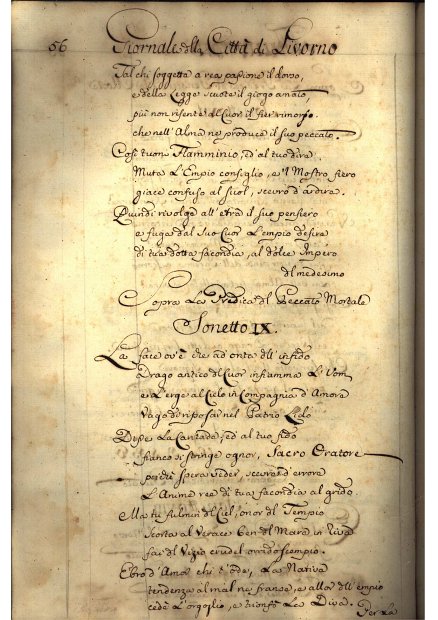 56 Giornale della Città di Livorno
Tal chi soggetta a rea passione il dorso,
e della Legge scuote il giogo amato
più non risente al Cuor il fier rimorso
che nell'Alma ne produce il suo peccato.
Così tuoni Flamminio, ed al tuo dire
Muta l'Empio consiglio, e 'l Mostro fiero
giace confuso al suol, scevro d'ardire.
Quindi rivolge all'etra il suo pensiero
e fuga dal suo Cuor l'empio desire
di tua dotta facondia, al dolce Impero
Del medesimo
Sopra la Predica del Peccato Mortale
Sonetto IX.
La face ov'è che ad onta dell'infido
Drago antico del Cuor infiamma l'Uom
e l'erge al Cielo in Compagnia d'Amore
Vago di riposar nel Patrio Lido
Disse la Cantade, ed al tuo fido
fianco si stringe ognor, Sacro Oratore
spera veder, d'errore
L'Anime ree di tua facondia al grido.
Ma tu fulmin del Ciel, onor del Tempio
Scorta al verace Ben del Mare in Riva
fai del Vizio crudel orrido scempio.
Ebro d'Amor chi t'ode, la Nativa
tendenza al mal ne franse, e allor dell'empio
cede l'orgoglio, e trionfò la Diva.
Per la